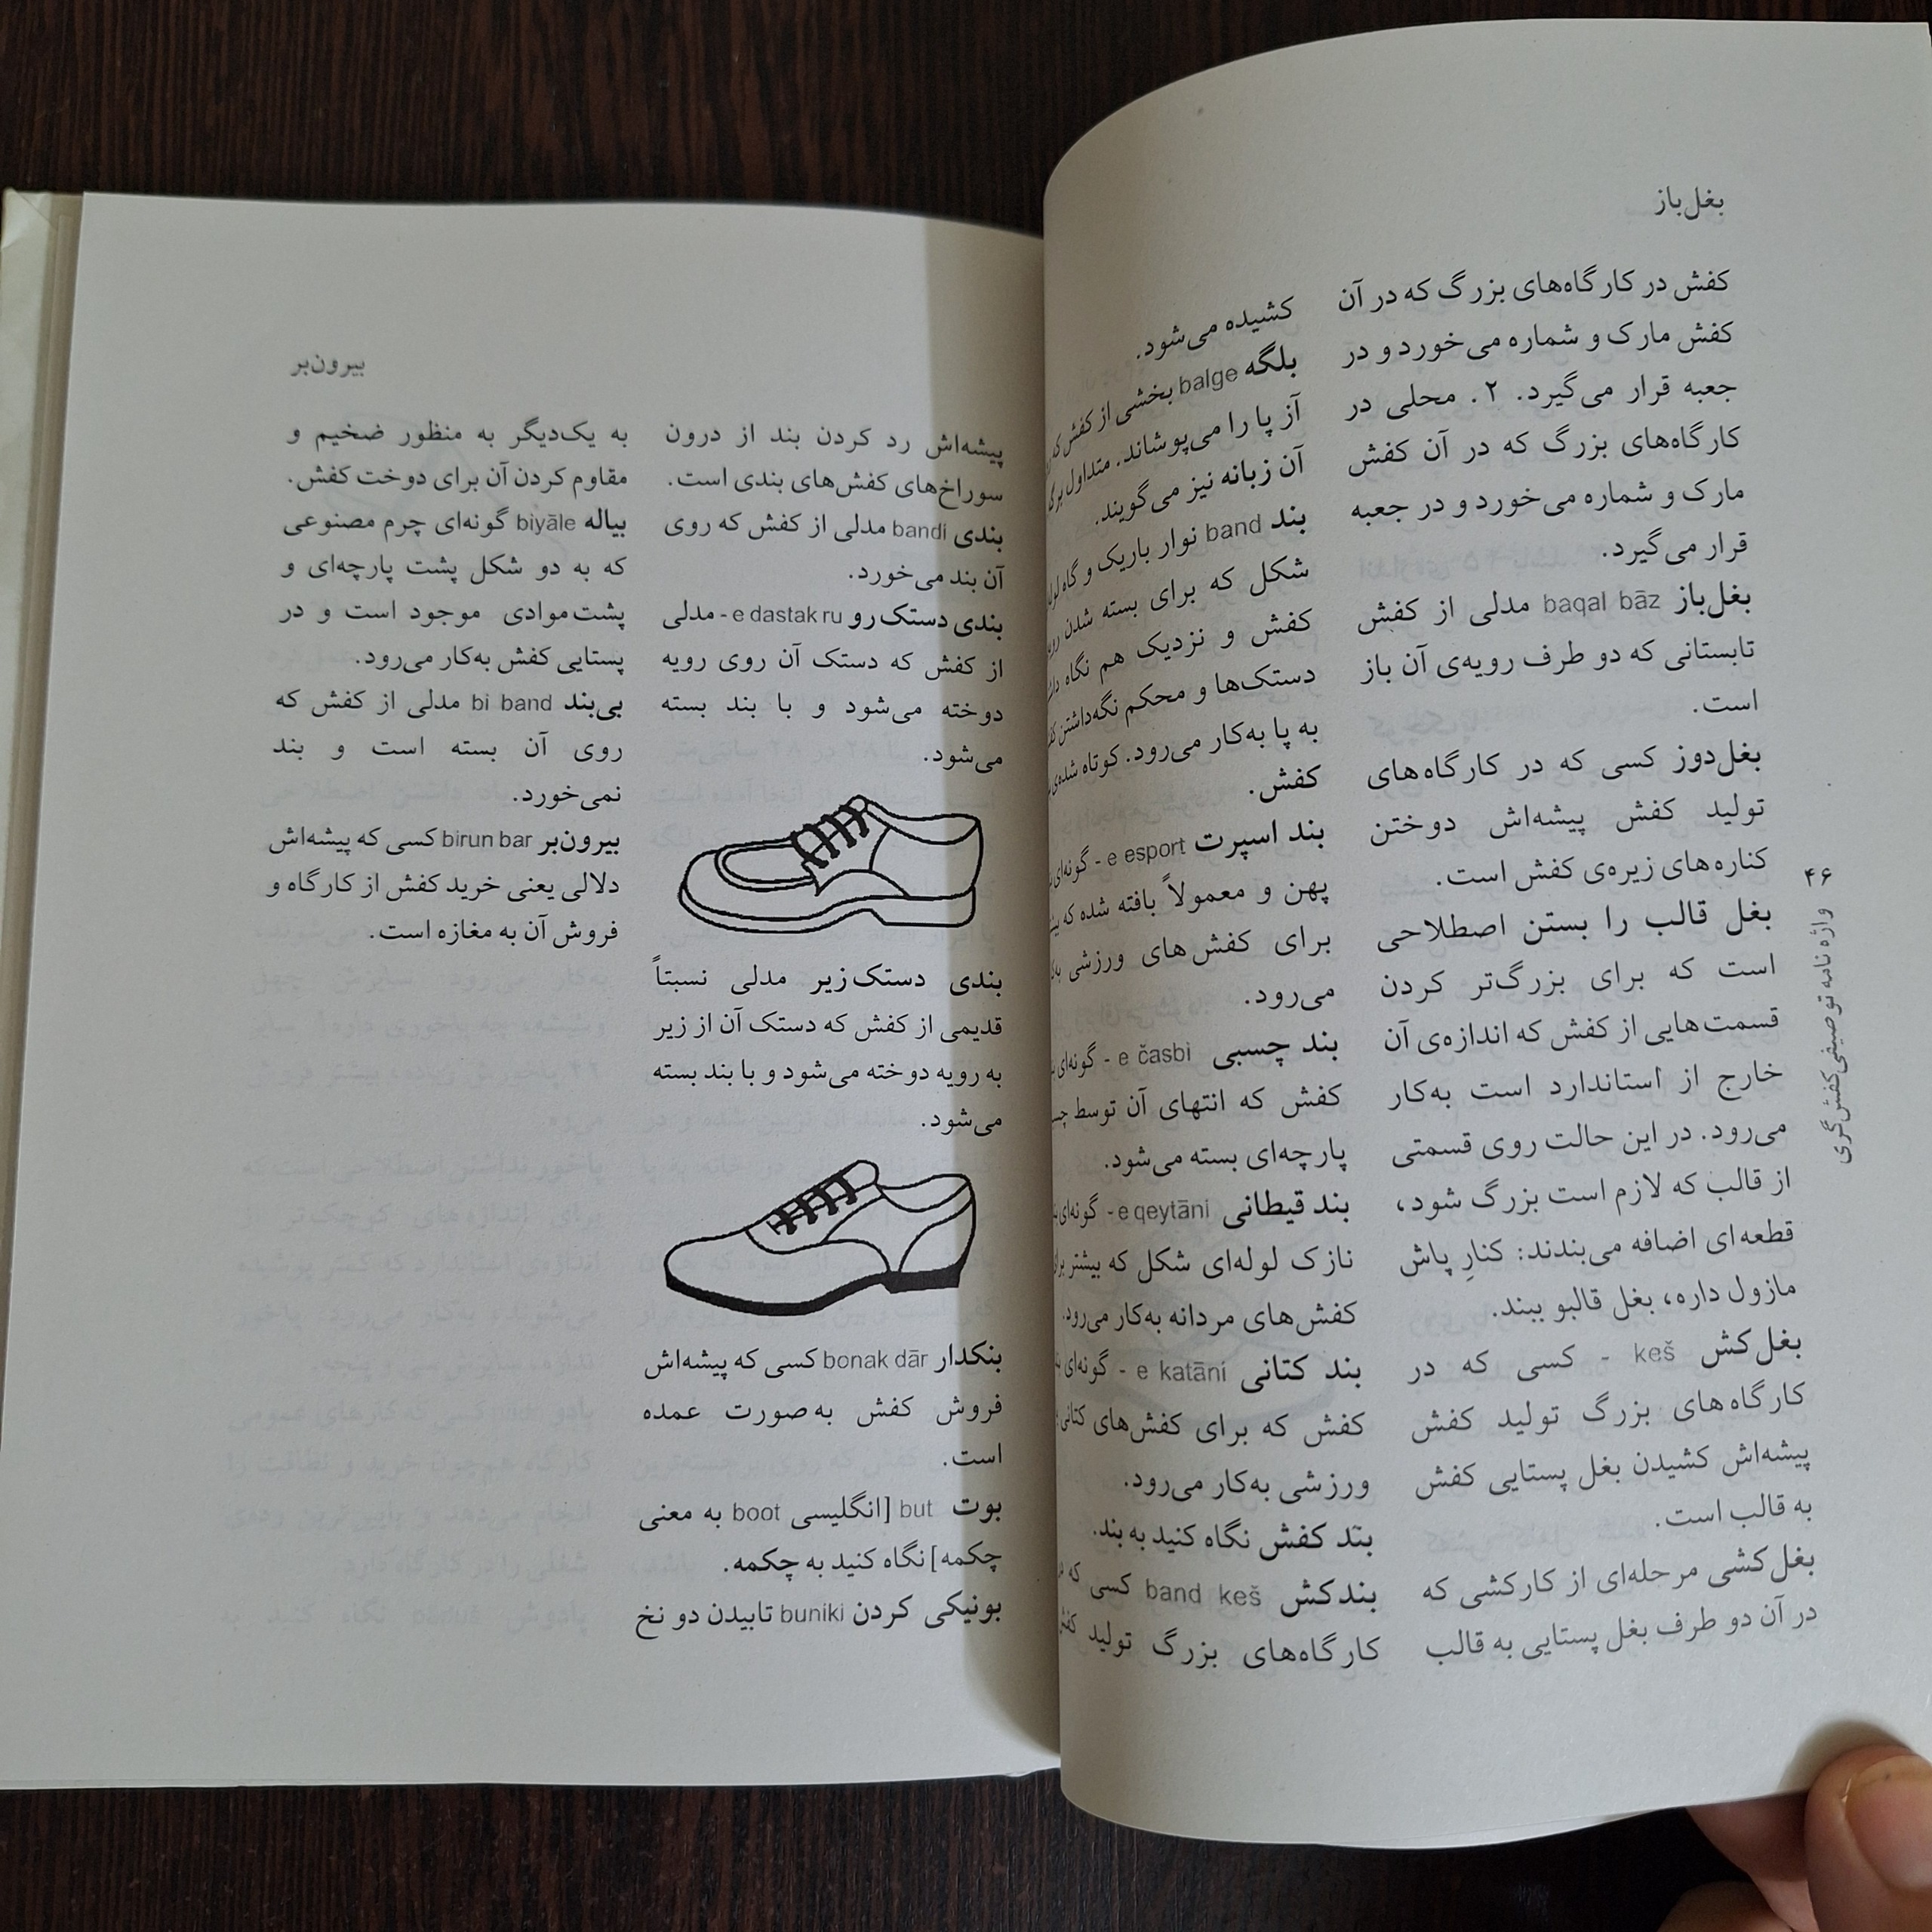 بغل‌باز
کفش در کارگاه‌های بزرگ که در آن
کفش مارک و شماره می‌خورد و در
جعبه قرار می‌گیرد. ۲. محلی در
کارگاه‌های بزرگ که در آن کفش
مارک و شماره می‌خورد و در جعبه
قرار می‌گیرد.
بغل‌باز baqal bāz مدلی از کفش
تابستانی که دو طرف رویه‌ی آن باز
است.
بغل‌دوز کسی که در کارگاه‌های
تولید کفش پیشه‌اش دوختن
کناره‌های زیره‌ی کفش است.
بغل قالب را بستن اصطلاحی
است که برای بزرگ‌تر کردن
قسمت‌هایی از کفش که اندازه‌ی آن
خارج از استاندارد است به‌کار
می‌رود. در این حالت روی قسمتی
از قالب که لازم است بزرگ شود،
قطعه‌ای اضافه می‌بندند: کنارِ پاش
مازول داره، بغل قالبو ببند.
بغل‌کش keš - کسی که در
کارگاه‌های بزرگ تولید کفش
پیشه‌اش کشیدن بغل پستایی کفش
به قالب است.
بغل‌کشی مرحله‌ای از کارکشی که
در آن دو طرف بغل پستایی به قالب
کشیده می‌شود.
بلگه balge بخشی از کفش که
آز پا را می‌پوشاند. متداول
آن زبانه نیز می‌گویند.
بند band نوار باریک و گاه
شکل که برای بسته شدن
کفش و نزدیک هم نگاه
دستک‌ها و محکم نگه‌داشتن
به پا به‌کار می‌رود. کوتاه شده‌ی
کفش.
بند اسپرت e esport - گونه‌ای
پهن و معمولاً بافته شده که
برای کفش‌های ورزشی
می‌رود.
بند چسبی e časbi - گونه‌ای
کفش که انتهای آن توسط
پارچه‌ای بسته می‌شود.
بند قیطانی e qeytāni - گونه‌ای
نازک لوله‌ای شکل که بیشتر
کفش‌های مردانه به‌کار می‌رود.
بند کتانی e katāni - گونه‌ای
کفش که برای کفش‌های کتانی
ورزشی به‌کار می‌رود.
بند کفش نگاه کنید به بند.
بندکش band keš کسی که
کارگاه‌های بزرگ تولید
۴۶
واژه نامه توصیفی کفش‌گری
بیرون‌بر
پیشه‌اش رد کردن بند از درون
سوراخ‌های کفش‌های بندی است.
بندی bandi مدلی از کفش که روی
آن بند می‌خورد.
بندی دستک‌رو e dastak ru - مدلی
از کفش که دستک آن روی رویه
دوخته می‌شود و با بند بسته
می‌شود.
بندی دستک‌زیر مدلی نسبتاً
قدیمی از کفش که دستک آن از زیر
به رویه دوخته می‌شود و با بند بسته
می‌شود.
بنکدار bonak dār کسی که پیشه‌اش
فروش کفش به‌صورت عمده
است.
بوت but [انگلیسی boot به معنی
چکمه] نگاه کنید به چکمه.
بونیکی کردن buniki تابیدن دو نخ
به یک‌دیگر به منظور ضخیم و
مقاوم کردن آن برای دوخت کفش.
بیاله biyāle گونه‌ای چرم مصنوعی
که به دو شکل پشت پارچه‌ای و
پشت‌موادی موجود است و در
پستایی کفش به‌کار می‌رود.
بی‌بند bi band مدلی از کفش که
روی آن بسته است و بند
نمی‌خورد.
بیرون‌بر birun bar کسی که پیشه‌اش
دلالی یعنی خرید کفش از کارگاه و
فروش آن به مغازه است.